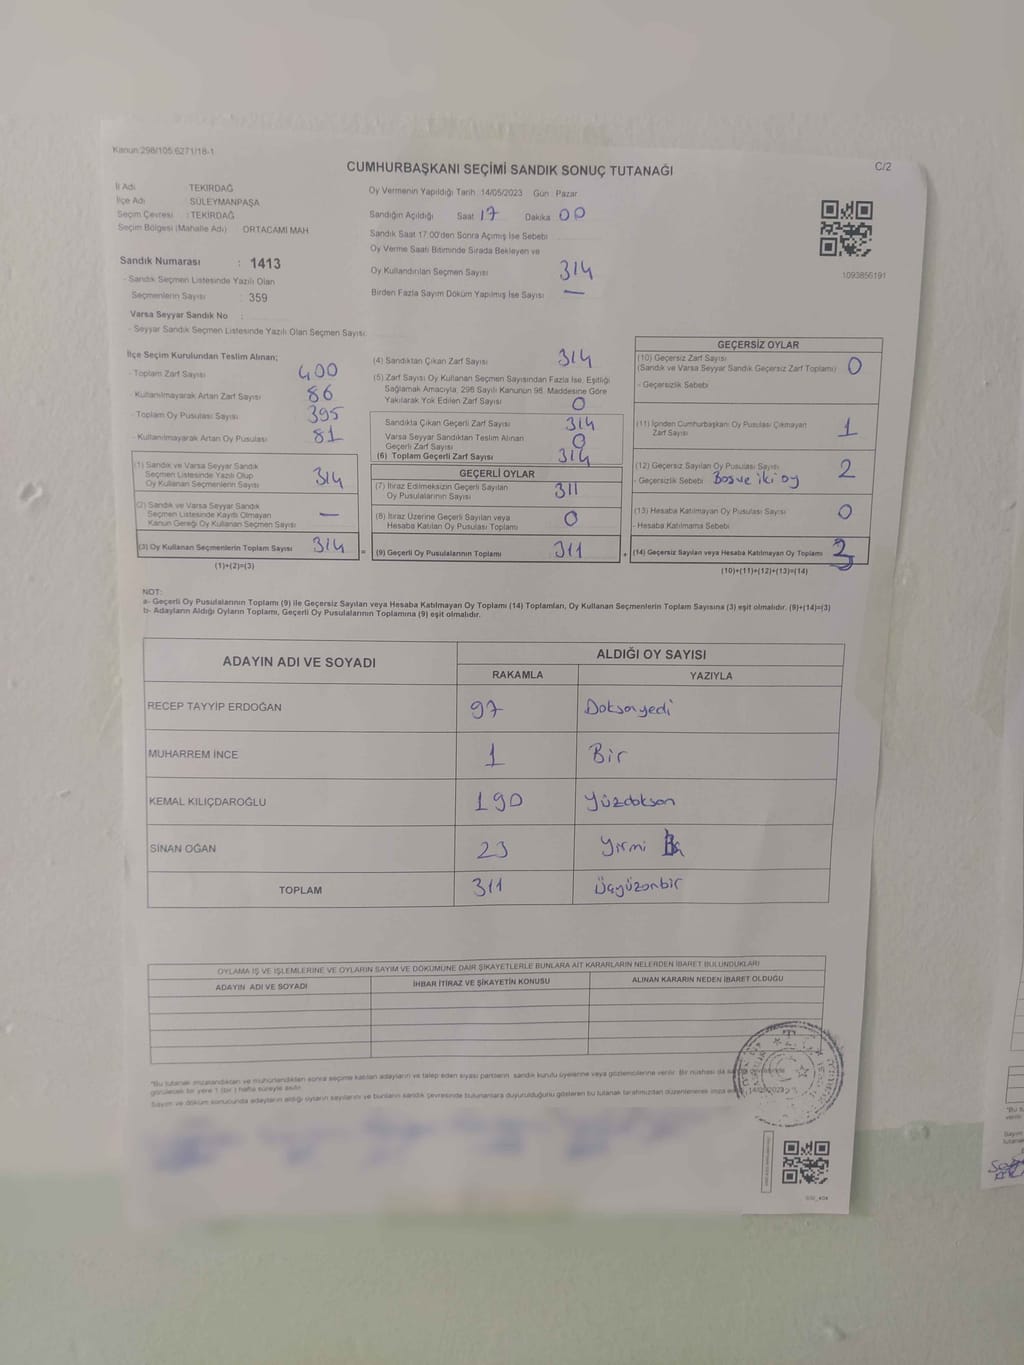 Kanun:298/105.6271/18-1
CUMHURBAŞKANI SEÇİMİ SANDIK SONUÇ TUTANAĞI
C/2
İl Adı TEKİRDAĞ
İlçe Adı SÜLEYMANPAŞA
Seçim Çevresi : TEKİRDAĞ
Seçim Bölgesi (Mahalle Adı) ORTACAMİ MAH
Sandık Numarası : 1413
- Sandık Seçmen Listesinde Yazılı Olan
Seçmenlerin Sayısı : 359
Varsa Seyyar Sandık No :
- Seyyar Sandık Seçmen Listesinde Yazılı Olan Seçmen Sayısı:
Oy Vermenin Yapıldığı Tarih :14/05/2023 Gün : Pazar
Sandığın Açıldığı Saat 17 Dakika 00
Sandık Saat 17:00'den Sonra Açılmış İse Sebebi
Oy Verme Saati Bitiminde Sırada Bekleyen ve
Oy Kullandırılan Seçmen Sayısı 314
Birden Fazla Sayım Döküm Yapılmış İse Sayısı —
1093856191
İlçe Seçim Kurulundan Teslim Alınan;
- Toplam Zarf Sayısı 400
- Kullanılmayarak Artan Zarf Sayısı 86
- Toplam Oy Pusulası Sayısı 395
- Kullanılmayarak Artan Oy Pusulası 81
(1) Sandık ve Varsa Seyyar Sandık
Seçmen Listesinde Yazılı Olup
Oy Kullanan Seçmenlerin Sayısı 314
(2) Sandık ve Varsa Seyyar Sandık
Seçmen Listesinde Kayıtlı Olmayan
Kanun Gereği Oy Kullanan Seçmen Sayısı —
(3) Oy Kullanan Seçmenlerin Toplam Sayısı 314
(1)+(2)=(3)
(4) Sandıktan Çıkan Zarf Sayısı 314
(5) Zarf Sayısı Oy Kullanan Seçmen Sayısından Fazla İse, Eşitliği
Sağlamak Amacıyla, 298 Sayılı Kanunun 98. Maddesine Göre
Yakılarak Yok Edilen Zarf Sayısı 0
Sandıkta Çıkan Geçerli Zarf Sayısı 314
Varsa Seyyar Sandıktan Teslim Alınan
Geçerli Zarf Sayısı 0
(6) Toplam Geçerli Zarf Sayısı 314
GEÇERLİ OYLAR
(7) İtiraz Edilmeksizin Geçerli Sayılan
Oy Pusulalarının Sayısı 311
(8) İtiraz Üzerine Geçerli Sayılan veya
Hesaba Katılan Oy Pusulası Toplamı 0
= (9) Geçerli Oy Pusulalarının Toplamı 311
GEÇERSİZ OYLAR
(10) Geçersiz Zarf Sayısı
(Sandık ve Varsa Seyyar Sandık Geçersiz Zarf Toplamı) 0
- Geçersizlik Sebebi
(11) İçinden Cumhurbaşkanı Oy Pusulası Çıkmayan
Zarf Sayısı 1
(12) Geçersiz Sayılan Oy Pusulası Sayısı 2
- Geçersizlik Sebebi Bosve iki oy
(13) Hesaba Katılmayan Oy Pusulası Sayısı 0
- Hesaba Katılmama Sebebi
+ (14) Geçersiz Sayılan veya Hesaba Katılmayan Oy Toplamı 3
(10)+(11)+(12)+(13)=(14)
NOT:
a- Geçerli Oy Pusulalarının Toplamı (9) ile Geçersiz Sayılan veya Hesaba Katılmayan Oy Toplamı (14) Toplamları, Oy Kullanan Seçmenlerin Toplam Sayısına (3) eşit olmalıdır. (9)+(14)=(3)
b- Adayların Aldığı Oyların Toplamı, Geçerli Oy Pusulalarının Toplamına (9) eşit olmalıdır.
ADAYIN ADI VE SOYADI ALDIĞI OY SAYISI
RAKAMLA YAZIYLA
RECEP TAYYİP ERDOĞAN 97 Doksanyedi
MUHARREM İNCE 1 Bir
KEMAL KILIÇDAROĞLU 190 Yüzdoksan
SİNAN OĞAN 23 Yirmi
TOPLAM 311 Üçyüzonbir
OYLAMA İŞ VE İŞLEMLERİNE VE OYLARIN SAYIM VE DÖKÜMÜNE DAİR ŞİKAYETLERLE BUNLARA AİT KARARLARIN NELERDEN İBARET BULUNDUKLARI
ADAYIN ADI VE SOYADI İHBAR İTİRAZ VE ŞİKAYETİN KONUSU ALINAN KARARIN NEDEN İBARET OLDUĞU
*Bu tutanak imzalandıktan ve mühürlendikten sonra seçime katılan adayların ve talep eden siyasi partilerin sandık kurulu üyelerine veya gözlemcilerine verilir. Bir nüshası da
görülecek bir yere 1 (bir) hafta süreyle asılır.
Sayım ve döküm sonucunda adayların aldığı oyların sayılarını ve bunların sandık çevresinde bulunanlara duyurulduğunu gösteren bu tutanak tarafımızdan düzenlenerek imza 14/05/2023